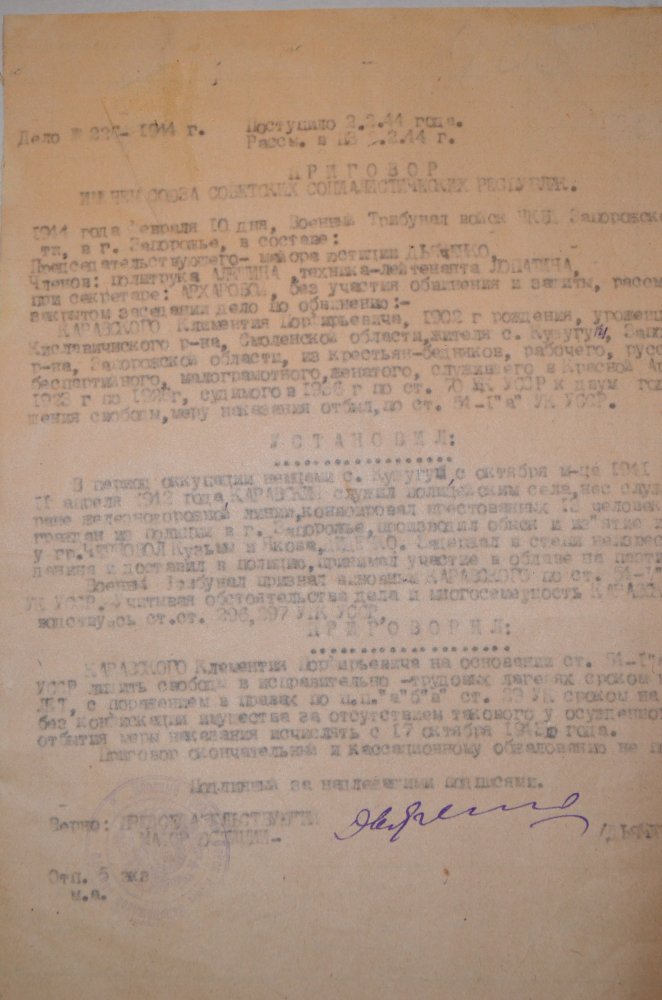 Дело № 227- 1944 г.
Поступило 2.2.44 года.
Рассм. в ПЗ .2.44 г.
П Р И Г О В О Р
ИМЕНЕМ СОЮЗА СОВЕТСКИХ СОЦИАЛИСТИЧЕСКИХ РЕСПУБЛИК.
1944 года Февраля 10 дня, Военный Трибунал войск НКВД Запорожско
ти, в г. Запорожье, в составе:
Председательствующего- майора юстиции ДЬЯЧЕНКО,
Членов: политрука АЛЕШИНА ,техника-лейтенанта ЛОПАТИНА,
при секретаре: АРХАРОВОЙ, без участия обвинения и защиты, рассм
закрытом заседании дело по обвинению:-
КАРАВСКОГО Климентия Порфирьевича, 1902 г рождения, урожен
Хиславичиского р-на, Смоленской области,жителя с. Кушугум, Запо
р-на, Запорожской области, из крестьян-бедняков, рабочего, русс
беспартийного, малограмотного,женатого, служившего в Красной Ар
1923 г по 1928г, судимого в 1936 г по ст. 70 УК УССР к двум год
шения свободы,меру наказания отбыл,по ст. 54-1"а" УК УССР.
У С Т А Н О В И Л :
В период оккупации немцами с. Кушугум, с октября м-це 1941
11 апреля 1942 года КАРАВСКИЙ служил полицейским села,нес служ
ране железнодорожной линии,конвоировал арестованных 13 человек
граждан из полиции в г. Запорожье,производил обыск и из"ятие
у гр. Кузьмы и Якова, Задержал в степи неизвес
и доставил в полицию,принимал участие в облаве на парти
Военный Трибунал признал виновным КАРАВСКОГО по ст. 54-1"
УК УССР. Учитывая обстоятельства дела и многосемейность КАРАВ
водствуясь ст.ст. 296,297 УПК УССР,
П Р И Г О В О Р И Л :
КАРАВСКОГО Климентия Порфирьевича на основании ст. 54-1"
УССР лишить свободы в исправительно -трудовых лагерях сроком
ЛЕТ, с поражением в правах по п.п."а"б"в" ст. 29 УК сроком на
без конфискации имущества за отсутствием такового у осужденног
отбытия меры наказания исчислять с 17 октября года.
Приговор окончательный и кассационному обжалованию не п
Подлинный за надлежащими подписями.
Верно: ПРЕДСЕДАТЕЛЬСТВУЮЩИЙ
МАЙОР ЮСТИЦИИ-
/ДЬЯЧ
Отп. 5 экз
м.а.